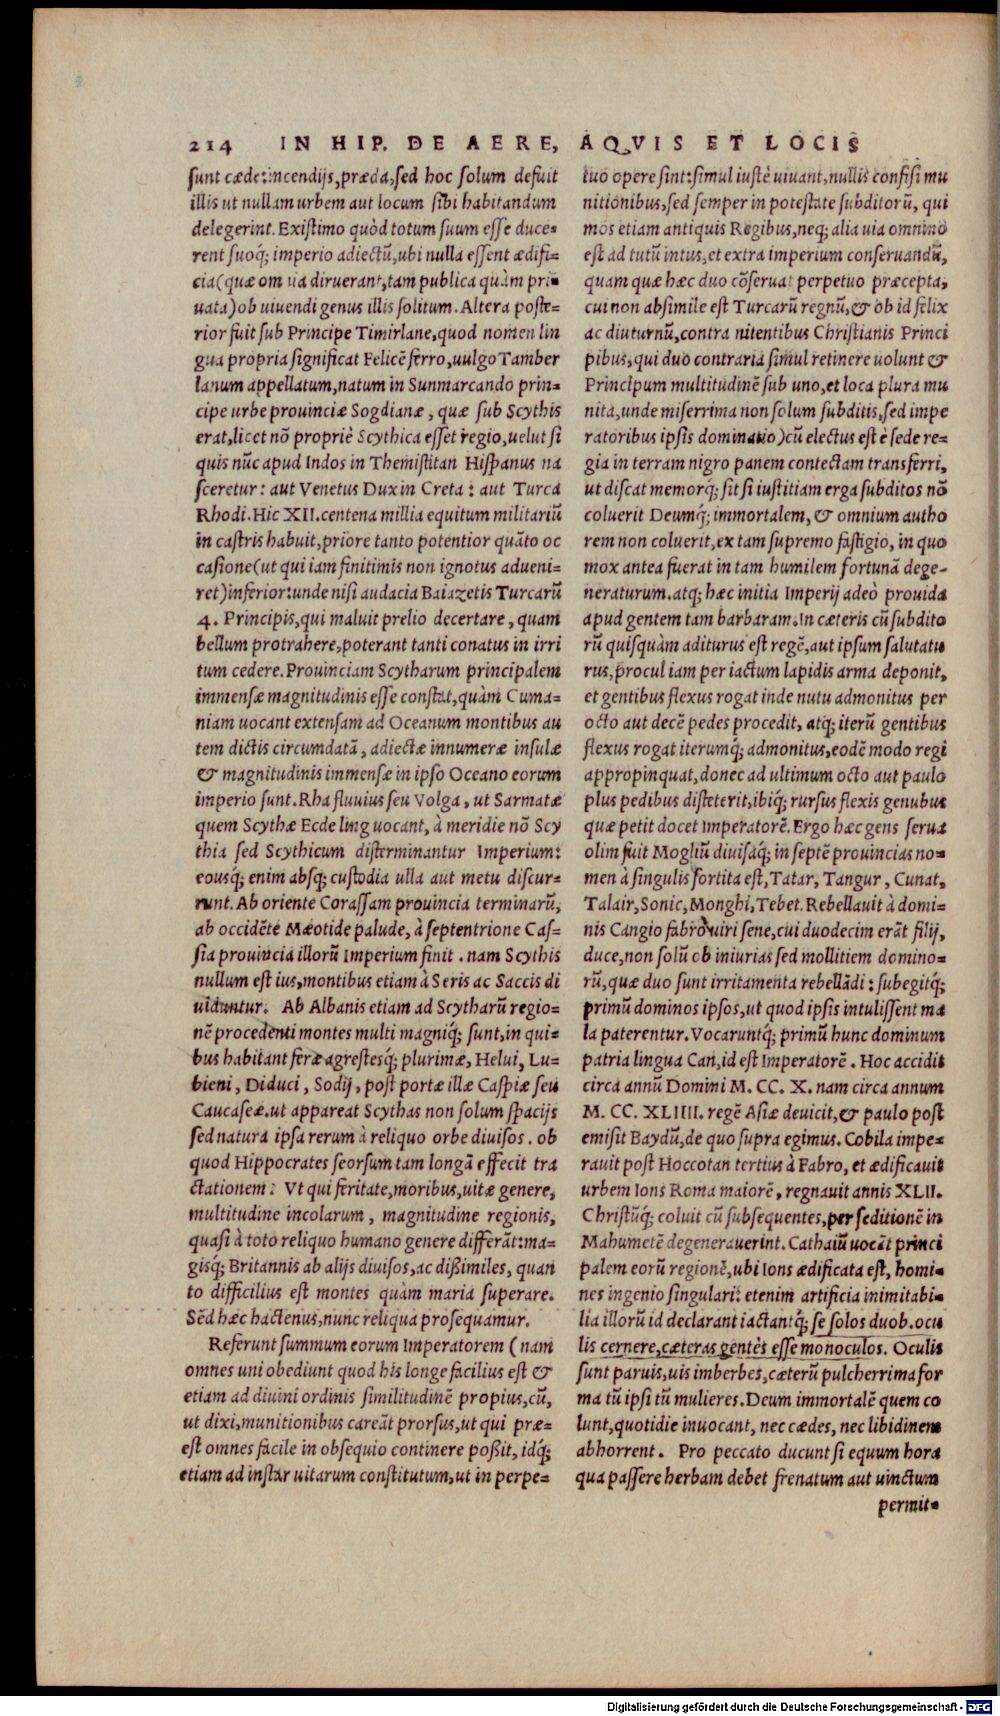 214 IN HIP. DE AERE, AQVIS ET LOCIS
sunt cæde: incendijs, præda, sed hoc solum defuit
illis ut nullam urbem aut locum sibi habitandum
delegerint. Existimo quòd totum suum esse duce=
rent suoq; imperio adiectū, ubi nulla essent ædifi=
cia (quæ omnia diruerant, tam publica quàm pri=
uata) ob uiuendi genus illis solitum. Altera poste=
rior fuit sub Principe Timirlane, quod nomen lin
gua propria significat Felicē ferro, uulgo Tamber
lanum appellatum, natum in Sunmarcando prin=
cipe urbe prouinciæ Sogdianæ, quæ sub Scythis
erat, licet nō propriè Scythica esset regio, uelut si
quis nūc apud Indos in Themistitan Hispanus na
sceretur: aut Venetus Dux in Creta: aut Turca
Rhodi. Hic XII. centena millia equitum militariū
in castris habuit, priore tanto potentior quāto oc
casione (ut qui iam finitimis non ignotus adueni=
ret) inferior: unde nisi audacia Baiazetis Turcarū
4. Principis, qui maluit prelio decertare, quam
bellum protrahere, poterant tanti conatus in irri
tum cedere. Prouinciam Scytharum principalem
immensæ magnitudinis esse constat, quàm Cuma=
niam uocant extensam ad Oceanum montibus au
tem dictis circumdatā, adiectæ innumeræ insulæ
& magnitudinis immensæ in ipso Oceano eorum
imperio sunt. Rha fluuius seu Volga, ut Sarmatæ
quem Scythæ Ecdeling uocant, à meridie nō Scy
thia sed Scythicum disterminantur Imperium:
eousq; enim absq; custodia ulla aut metu discur=
runt. Ab oriente Corassam prouincia terminarū,
ab occidēte Mæotide palude, à septentrione Cas=
sia prouincia illorū Imperium finit. nam Scythis
nullum est ius, montibus etiam à Seris ac Saccis di
uiduntur. Ab Albanis etiam ad Scytharū regio=
nē procedenti montes multi magniq; sunt, in qui=
bus habitant feræ agrestesq; plurimæ, Helui, Lu=
bieni, Diduci, Sodij, post portæ illæ Caspiæ seu
Caucaseæ. ut appareat Scythas non solum spacijs
sed natura ipsa rerum à reliquo orbe diuisos. ob
quod Hippocrates seorsum tam longā effecit tra
ctationem: Vt qui feritate, moribus, uitæ genere,
multitudine incolarum, magnitudine regionis,
quasi à toto reliquo humano genere differāt: ma=
gisq; Britannis ab alijs diuisos, ac dißimiles, quan
to difficilius est montes quàm maria superare.
Sēd hæc hactenus, nunc reliqua prosequamur.
Referunt summum eorum Imperatorem (nam
omnes uni obediunt quod his longe facilius est &
etiam ad diuini ordinis similitudinē propius, cū,
ut dixi, munitionibus careāt prorsus, ut qui præ=
est omnes facile in obsequio continere poßit, idq;
etiam ad instar uitarum constitutum, ut in perpe=
tuo opere sint: simul iustè uiuant, nullis confisi mu
nitionibus, sed semper in potestate subditorū, qui
mos etiam antiquis Regibus, neq; alia uia omnino
est ad tutū intus, et extra imperium conseruandū,
quam quæ hæc duo cōseruat perpetuo præcepta,
cui non absimile est Turcarū regnū, & ob id felix
ac diuturnū, contra nitentibus Christianis Princi
pibus, qui duo contraria simul retinere uolunt &
Principum multitudinē sub uno, et loca plura mu
nita, unde miserrima non solum subditis, sed impe
ratoribus ipsis dominatio) cū electus est è sede re=
gia in terram nigro panem contectam transferri,
ut discat memorq; sit si iustitiam erga subditos nō
coluerit Deumq; immortalem, & omnium autho
rem non coluerit, ex tam supremo fastigio, in quo
mox antea fuerat in tam humilem fortunā dege-
neraturum. atq; hæc initia Imperij adeò prouida
apud gentem tam barbaram. In cæteris cū subdito
rū quisquàm aditurus est regē, aut ipsum salutatu
rus, procul iam per iactum lapidis arma deponit,
et gentibus flexus rogat inde nutu admonitus per
octo aut decē pedes procedit, atq; iterū gentibus
flexus rogat iterumq; admonitus, eodē modo regi
appropinquat, donec ad ultimum octo aut paulo
plus pedibus disteterit, ibiq; rursus flexis genubus
quæ petit docet Imperatorē. Ergo hæc gens serua
olim fuit Mogliū diuisaq; in septē prouincias no=
men à singulis sortita est, Tatar, Tangur, Cunat,
Talair, Sonic, Monghi, Tebet. Rebellauit à domi=
nis Cangio fabro uiri sene, cui duodecim erāt filij,
duce, non solū ob iniurias sed mollitiem domino=
rū, quæ duo sunt irritamenta rebellādi: subegitq;
primū dominos ipsos, ut quod ipsis intulissent ma
la paterentur. Vocaruntq; primū hunc dominum
patria lingua Can, id est Imperatorē. Hoc accidit
circa annū Domini M. CC. X. nam circa annum
M. CC. XLIIII. regē Asiæ deuicit, & paulo post
emisit Baydū, de quo supra egimus. Cobila impe=
rauit post Hoccotan tertius à Fabro, et ædificauit
urbem Ions Roma maiorē, regnauit annis XLII.
Christūq; coluit cū subsequentes, per seditionē in
Mahumetē degenerauerint. Cathaiū uocāt princi
palem eorū regionē, ubi Ions ædificata est, homi=
nes ingenio singulari: etenim artificia inimitabi=
lia illorū id declarant iactantq; se solos duob. ocu
lis cernere, cæteras gentes esse monoculos. Oculis
sunt paruis, uis imberbes, cæterū pulcherrima for
ma tū ipsi tū mulieres. Deum immortalē quem co
lunt, quotidie inuocant, nec cædes, nec libidinem
abhorrent. Pro peccato ducunt si equum hora
qua passere herbam debet frenatum aut uinctum
permit=
Digitalisierung gefördert durch die Deutsche Forschungsgemeinschaft - DFG